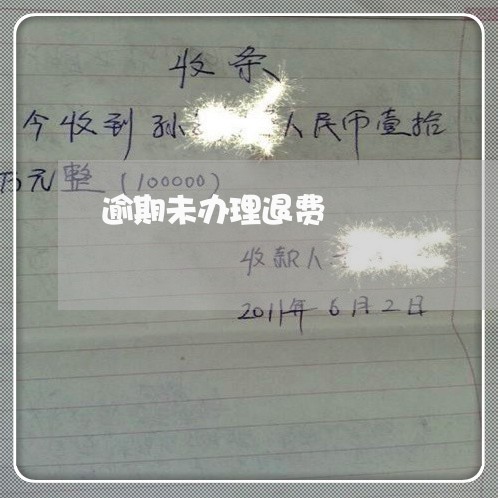 收条
今收到孙 人民币壹拾
万元整（100000）
逾期未办理退费
收款人
2011年6月2日